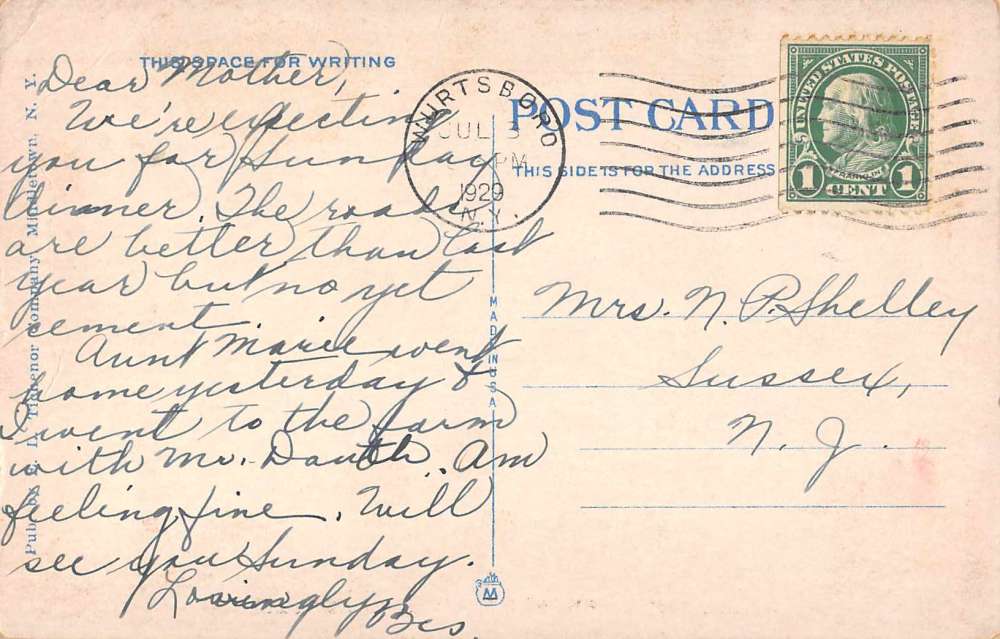 THIS SPACE FOR WRITING
Dear Mother,
We're expecting
you for Sunday
dinner. The roads
are better than last
year but no yet
cement.
Aunt Marie went
home yesterday &
I went to the farm
with Mr. Dauth. Am
feeling fine. Will
see you Sunday.
Lovingly
Bes.
Pub. by C. L. Tichenor Company, Middletown, N. Y.
WURTSBORO
JUL 3
PM
1929
N.Y.
POST CARD
THIS SIDE IS FOR THE ADDRESS
UNITED STATES POSTAGE
FRANKLIN
1 CENT 1
MADE IN U.S.A.
Mrs. N. P. Shelley
Sussex,
N. J.